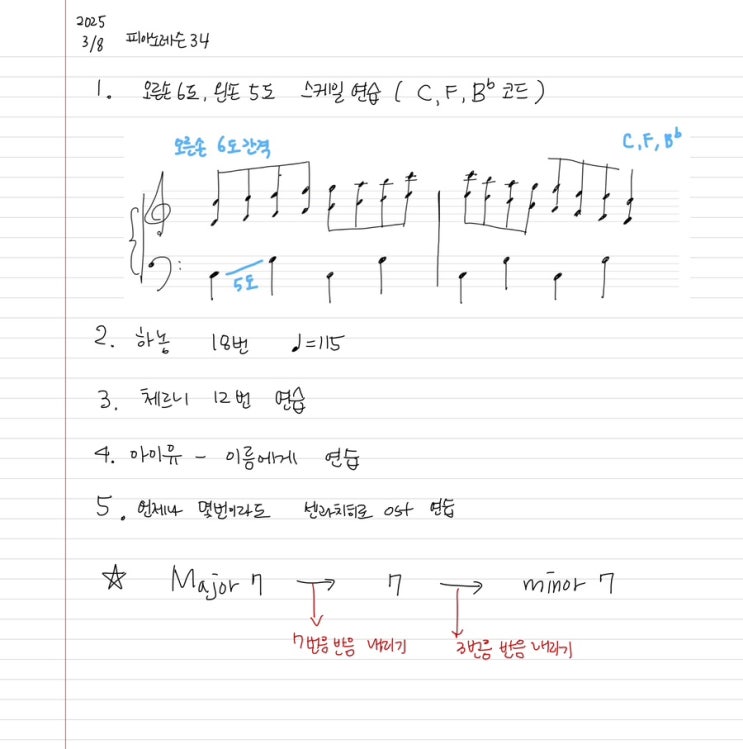 2025
3/8 피아노레슨 34
1. 오른손 6도, 왼손 5도 스케일 연습 ( C, F, B♭ 코드 )
오른손 6도 간격
C, F, B♭
5도
2. 하농 18번 ♩=115
3. 체르니 12번 연습
4. 아이유 - 이름에게 연습
5. 언제나 몇번이라도 센과치히로 ost 연습
☆ Major 7 → 7 → minor 7
7번음 반음 내리기 3번음 반음 내리기